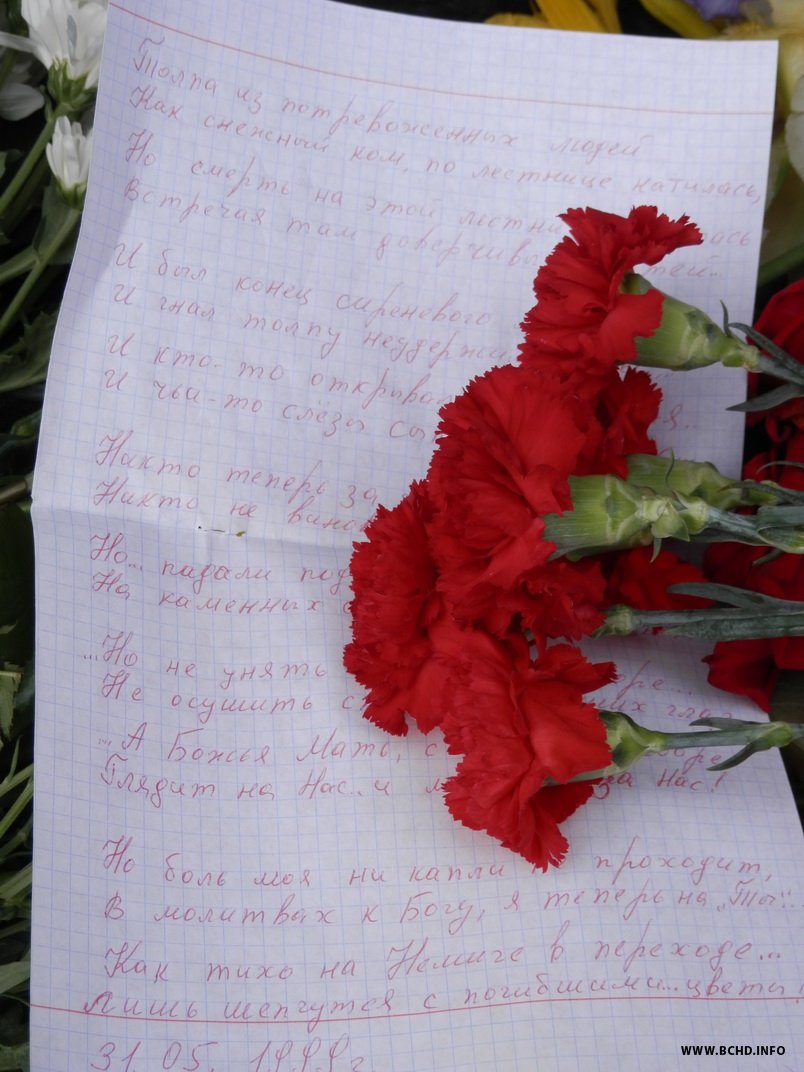 Толпа из потревоженных людей
Как снежный ком, по лестнице катилась,
Но смерть на этой лестни
Встречая там доверчивы тей..
И был конец сиреневого
И гнал толпу неудержи
И кто-то открывал
И чьи-то слёзы
Никто теперь за
Никто не вино
Но... падали под
На каменных
...Но не унять ре...
Не осушить их глаз
...А Божья Мать, с
Глядит на Нас.. и за Нас!
Но боль моя ни капли проходит,
В молитвах к Богу, я теперь на „Ты"..
Как тихо на Немиге в переходе...
Лишь шепчутся с погибшими.. цветы!
31.05.1999г
WWW.BCHD.INFO